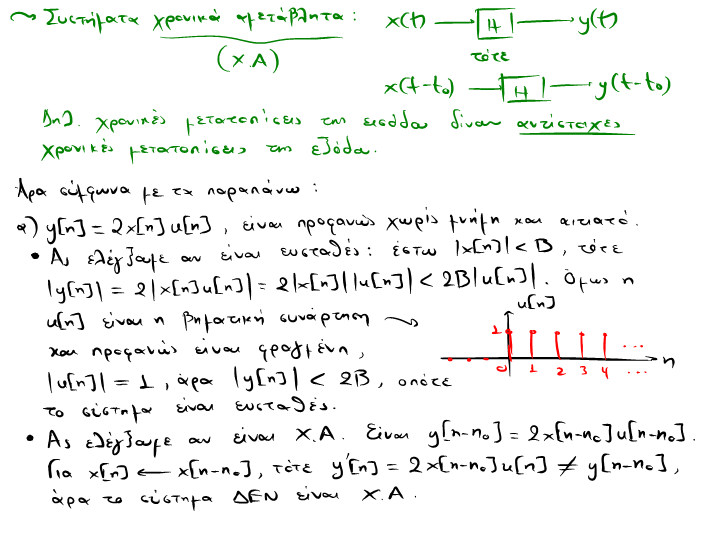 ~> Συστήματα χρονικά αμετάβλητα : x(t) → H → y(t)
(Χ.Α) τότε
x(t-t₀) → H → y(t-t₀)
Δηλ. χρονικές μετατοπίσεις της εισόδου δίνουν αντίστοιχες
χρονικές μετατοπίσεις της εξόδου.
Άρα σύμφωνα με τα παραπάνω :
α) y[n] = 2x[n]u[n] , είναι προφανώς χωρίς μνήμη και αιτιατό.
• Ας ελέγξουμε αν είναι ευσταθές : έστω |x[n]| < B , τότε
|y[n]| = 2|x[n]u[n]| = 2|x[n]||u[n]| < 2B|u[n]| . Όμως η
u[n]
u[n] είναι η βηματική συνάρτηση ~>
1 ...
και προφανώς είναι φραγμένη ,
0 1 2 3 4 ... n
|u[n]| = 1 , άρα |y[n]| < 2B , οπότε
το σύστημα είναι ευσταθές.
• Ας ελέγξουμε αν είναι Χ.Α. Είναι y[n-n₀] = 2x[n-n₀]u[n-n₀] .
Για x[n] ← x[n-n₀] , τότε y'[n] = 2x[n-n₀]u[n] ≠ y[n-n₀] ,
άρα το σύστημα ΔΕΝ είναι Χ.Α .